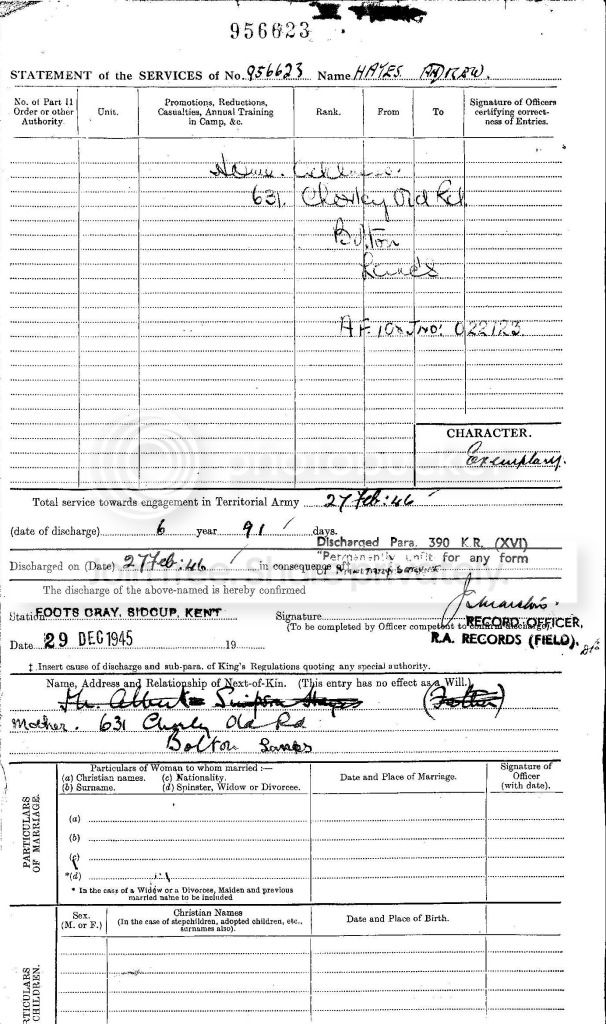 956623
STATEMENT of the SERVICES of No. 956623 Name HAYES ANDREW.
No. of Part II Order or other Authority.
Unit.
Promotions, Reductions, Casualties, Annual Training in Camp, &c.
Rank.
From
To
Signature of Officers certifying correctness of Entries.
Home
631. Chorley Old Rd.
Bolton
Lancs
022123
CHARACTER.
Exemplary.
Total service towards engagement in Territorial Army 27 Feb: 46
(date of discharge) 6 year 91 days.
Discharged Para. 390 K.R. (XVI)
"Permanently unfit for any form
Discharged on (Date) 27 Feb: 46 in consequence of
The discharge of the above-named is hereby confirmed
Station FOOTS CRAY, SIDCUP, KENT Signature
(To be completed by Officer competent to confirm discharge).
RECORD OFFICER,
Date 29 DEC 1945 19
R.A. RECORDS (FIELD).
‡ Insert cause of discharge and sub-para. of King's Regulations quoting any special authority.
Name, Address and Relationship of Next-of-Kin. (This entry has no effect as a Will.)
Mr. Albert Simpson Hayes (Father)
Mother. 631 Chorley Old Rd
Bolton Lancs
PARTICULARS OF MARRIAGE.
Particulars of Woman to whom married :—
(a) Christian names. (c) Nationality.
(b) Surname. (d) Spinster, Widow or Divorcee.
Date and Place of Marriage.
Signature of Officer (with date).
(a)
(b)
(c)
*(d)
* In the case of a Widow or a Divorcee, Maiden and previous married name to be included
PARTICULARS CHILDREN.
Sex. (M. or F.)
Christian Names
(In the case of stepchildren, adopted children, etc., surnames also).
Date and Place of Birth.